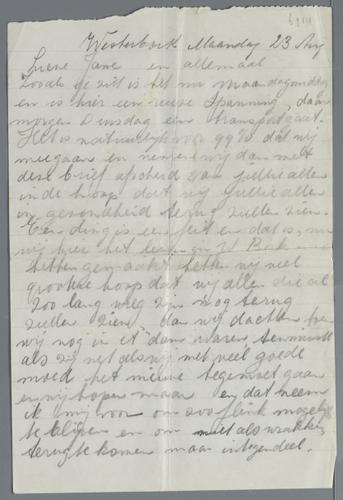 Westerbork Maandag 23 Aug
Lieve Jane en allemaal
Zooals je ziet is het nu maandagmiddag
en is hier een reuze spanning, daar
morgen Dinsdag een transport gaat.
Het is natuurlijk voor 99% dat wij
meegaan en nemen wij dan met
deze brief afscheid van jullie allen
in de hoop dat wij jullie allen
in gezondheid terug zullen zien.
Een ding is een feit en dat is, nu
wij hier het leven in W Bork
hebben gemaakt hebben wij veel
grootere hoop dat wij allen die al
zoo lang weg zijn nog terug
zullen zien, dan wij dachten
wij nog in A'dam waren tenminste
als zij net als wij met veel goede
moed het nieuwe tegemoet gaan
en wij hopen maar en dat neem
ik mij voor om zoo flink mogelijk
te blijven en om niet als wrakken
terug te komen maar integendeel.